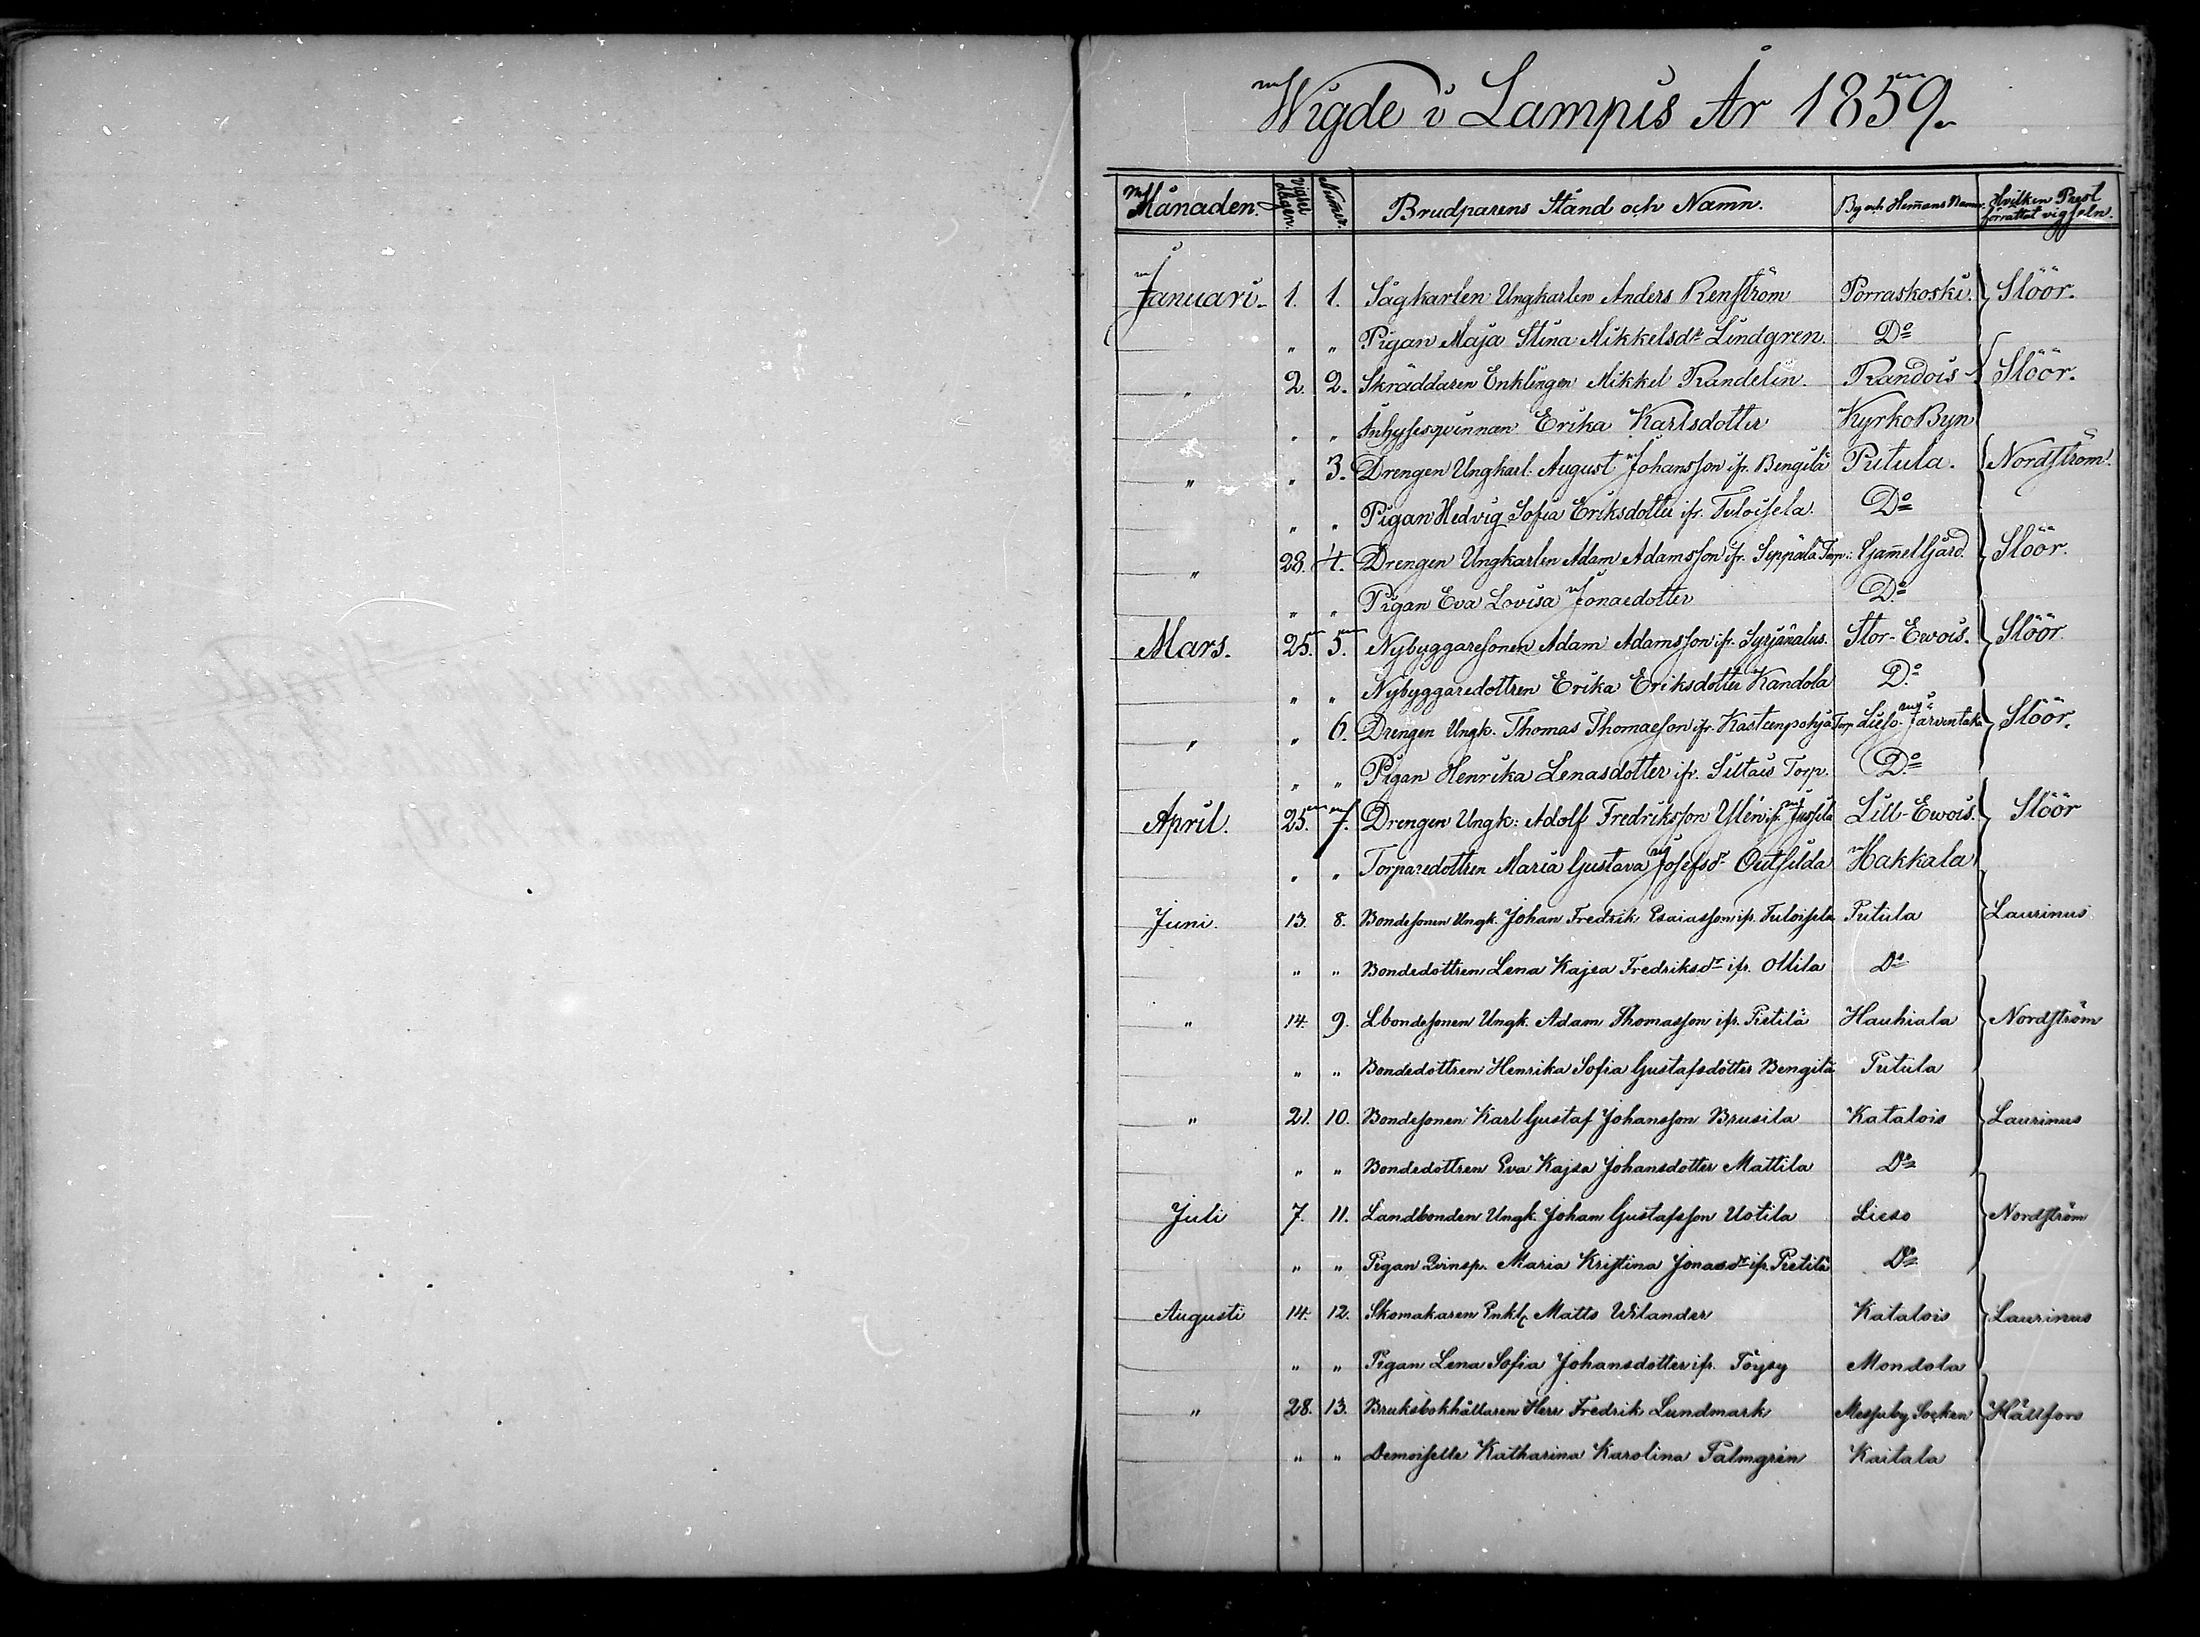 Wigde i Lampis År 1859.
Månaden. Vigsel dagen. Numer. Brudparens Stånd och Namn. By och Hemans Namn. Hvilken Prest förrättat vigseln.
Januari. 1. 1. Sågkarlen Ungkarlen Anders Renström Porraskoski. Slöör.
" " Pigan Maja Stina Mikkelsdr Lindgren. Do
" 2. 2. Skräddaren Enklingen Mikkel Randelin. Kandois Slöör.
" " Inhysesqvinnan Erika Karlsdotter KyrkoByn
" " 3. Drengen Ungkarl. August Johansson ifr. Bengilä Putula. Nordström.
" " Pigan Hedvig Sofia Eriksdotter ifr. Tuloisela. Do
" 28. 4. Drengen Ungkarlen Adam Adamsson ifr. Seppälä Torp: Gam̅elGård. Slöör.
" " Pigan Eva Lovisa Jonaedotter Do
Mars. 25. 5. Nybyggaresonen Adam Adamsson ifr. Syrjänalus. Stor-Ewois. Slöör.
" " Nybyggaredottren Erika Eriksdotter Kandola Do
" " 6. Drengen Ungk. Thomas Thomaeson ifr. Kasteenpohja Torp. Lieso-Järventaka Slöör.
" " Pigan Henrika Lenasdotter ifr. Siltais Torp. Do
April. 25. 7. Drengen Ungk: Adolf Fredriksson Ylén ifr. Jussila Lill-Ewois. Slöör
" " Torparedottren Maria Gustava Josefsdr Outsilda Hakkala
Juni. 13. 8. Bondesonen Ungk. Johan Fredrik Esaiasson ifr. Tuloisela Putula Laurinus
" " Bondedottren Lena Kajsa Fredriksdr ifr. Ollila Do
" 14. 9. Lbondesonen Ungk. Adam Thomasson ifr. Pietilä Hauhiala Nordström
" " Bondedottren Henrika Sofia Gustafsdotter Bengilä Putula
" 21. 10. Bondesonen Karl Gustaf Johansson Brusila Katalois Laurinus
" " Bondedottren Eva Kajsa Johansdotter Mattila Do
Juli 7. 11. Landbonden Ungk. Johan Gustafsson Uotila Lieso Nordström
" " Pigan Qvinsp. Maria Kristina Jonasdr ifr. Pietilä Do
Augusti 14. 12. Skomakaren Enkl. Matts Wilander Katalois Laurinus
" " Pigan Lena Sofia Johansdotter ifr. Töysy Mondola
" 28. 13. Bruksbokhållaren Herr Fredrik Lundmark Messuby Socken Hällfors
" " Demoiselle Katharina Karolina Palmgrén Kaitala